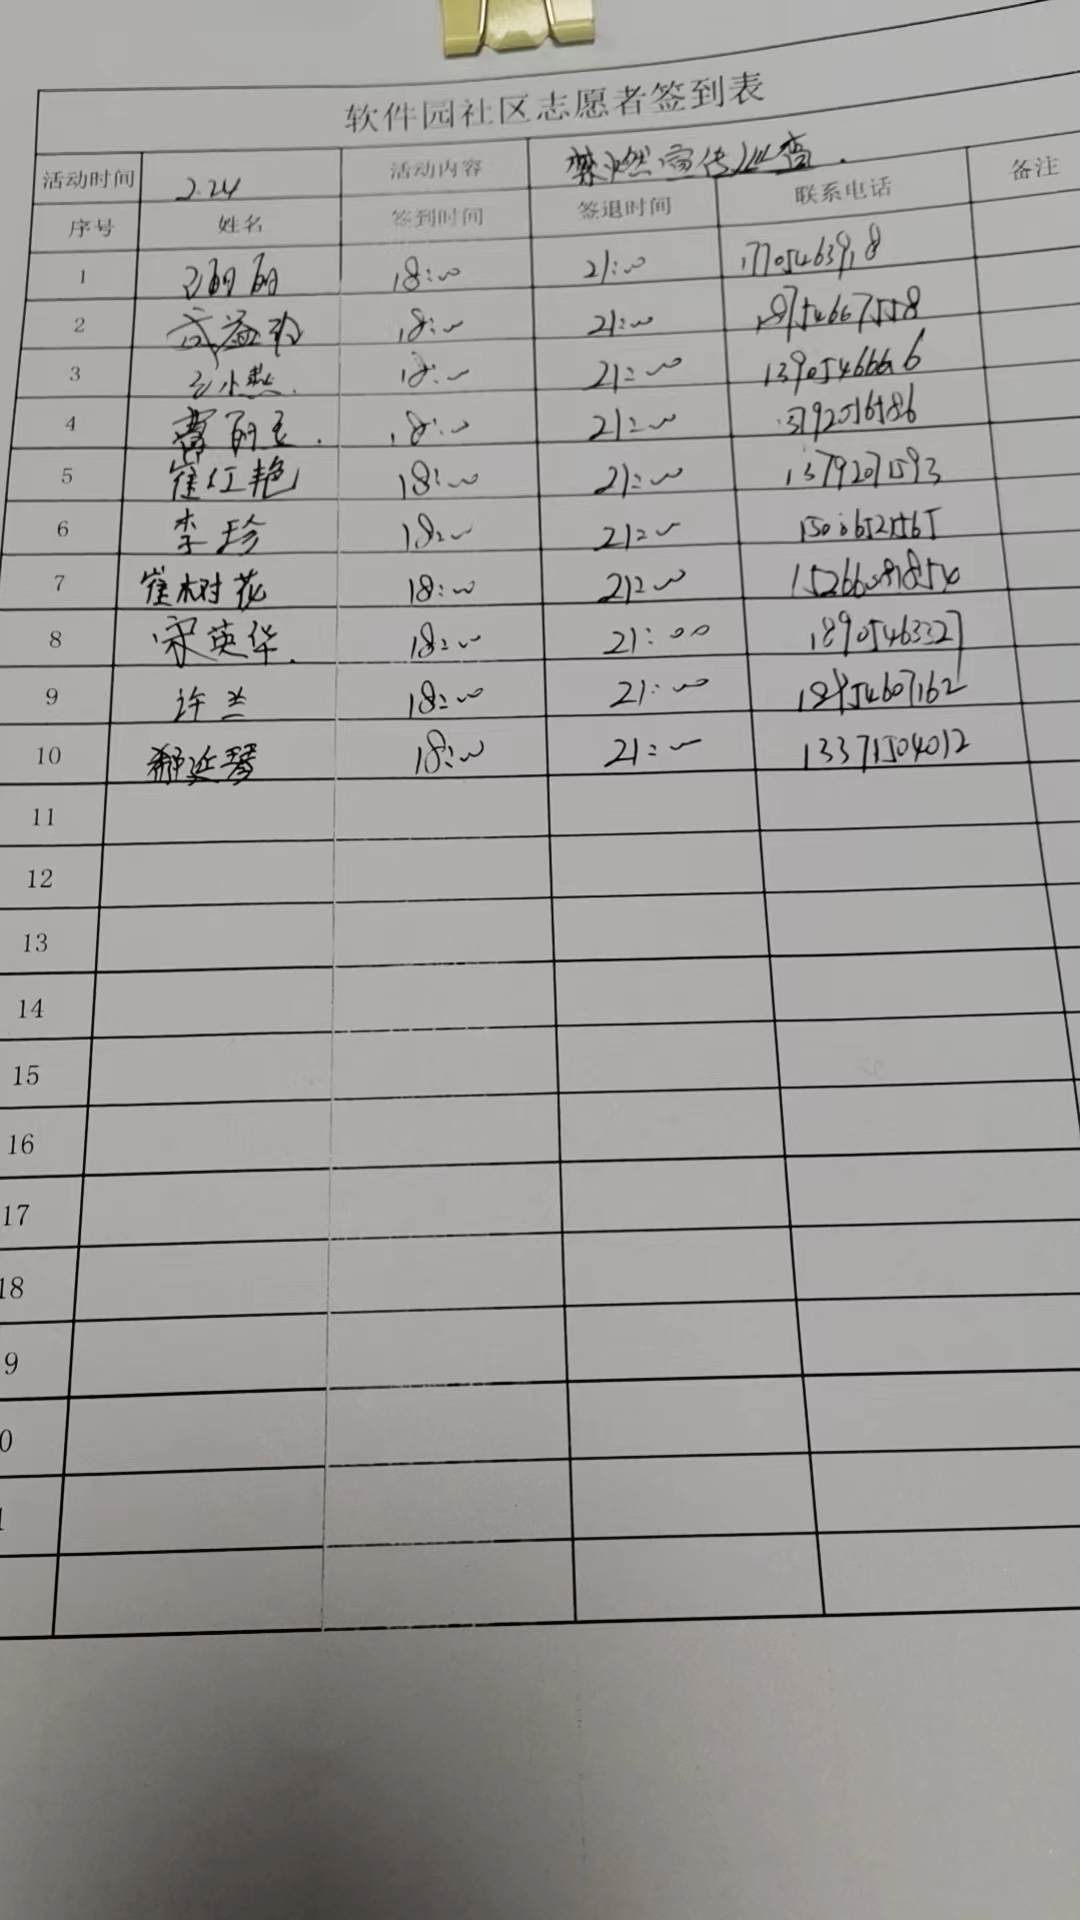 软件园社区志愿者签到表
活动时间 2.24 活动内容 禁燃宣传巡查.
序号 姓名 签到时间 签退时间 联系电话 备注
1 王丽丽 18:00 21:00
2 18:00 21:00 18754667558
3 王小燕. 18:00 21:00
4 曹丽玉. 18:00 21:00
5 崔红艳 18:00 21:00 13792071593
6 李珍 18:00 21:00
7 崔树花 18:00 21:00
8 宋英华. 18:00 21:00 18905463327
9 许兰 18:00 21:00
10 郝延琴 18:00 21:00 13371504012
11
12
13
14
15
16
17
18
9
0
1